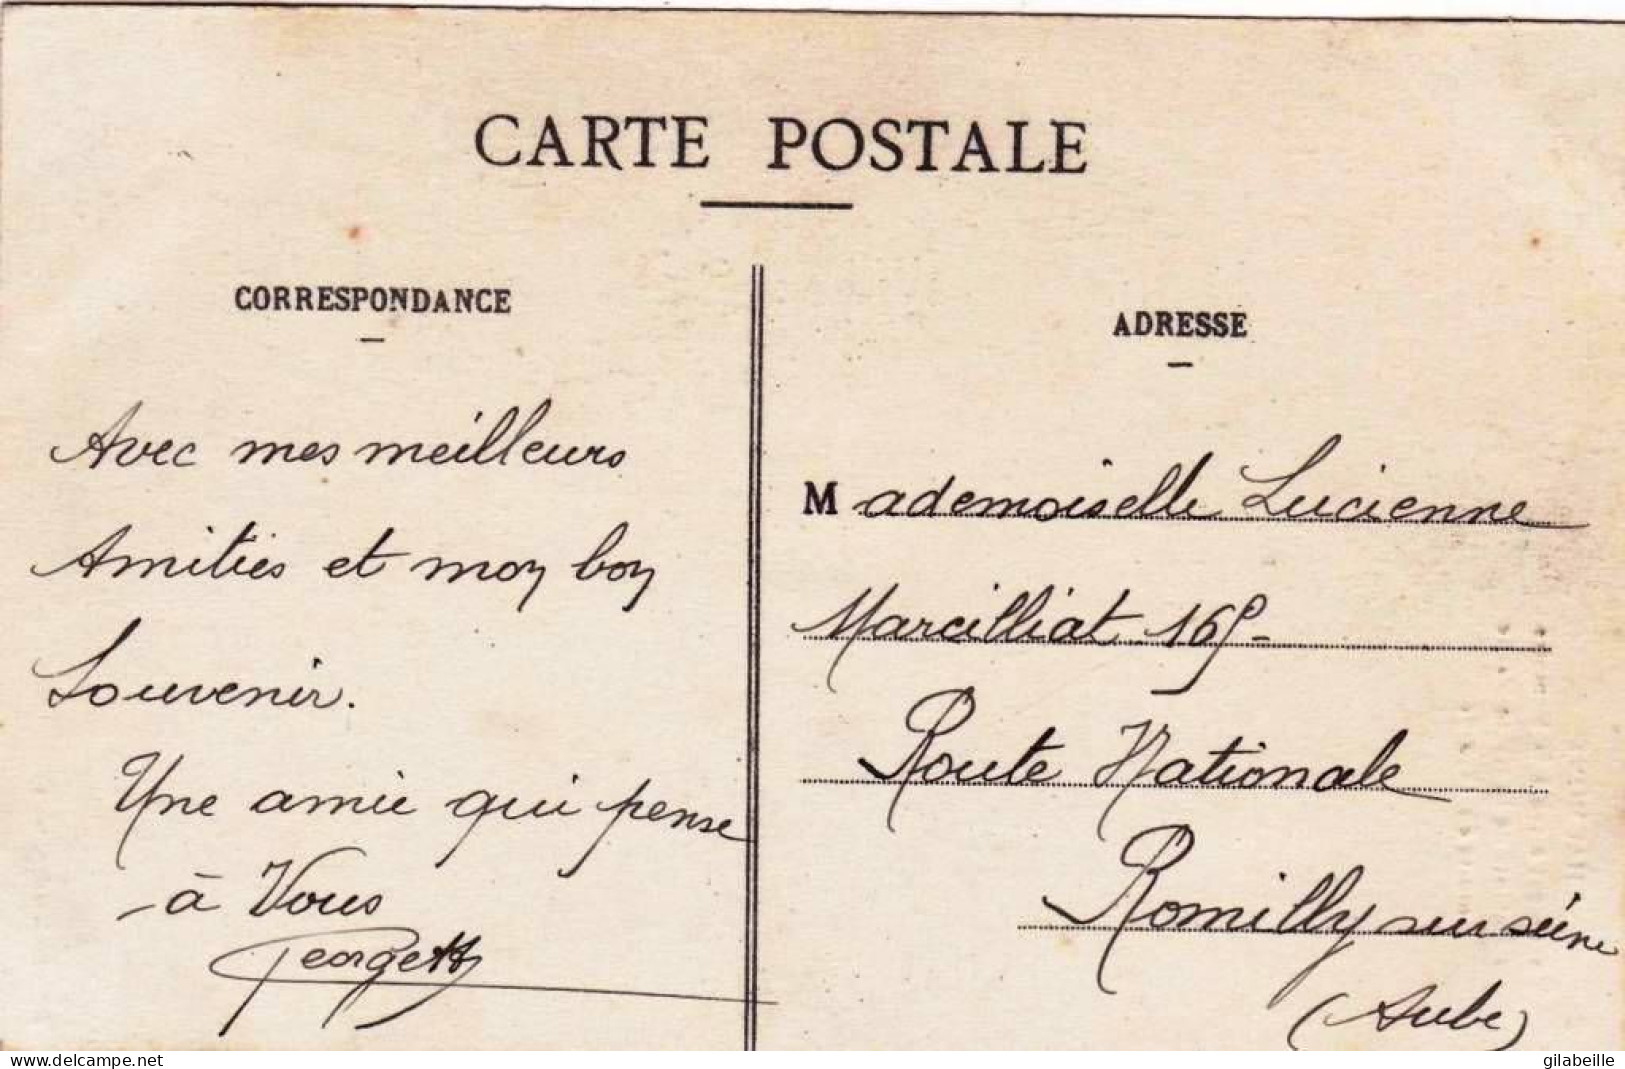 CARTE POSTALE
CORRESPONDANCE
ADRESSE
Avec mes meilleurs
Amitiés et mon bon
Souvenir.
Une amie qui pense
à Vous
Georgette
Mademoiselle Lucienne
Marcilliat 169-
Route Nationale
Romilly sur seine
(Aube)
www.delcampe.net
gilabeille